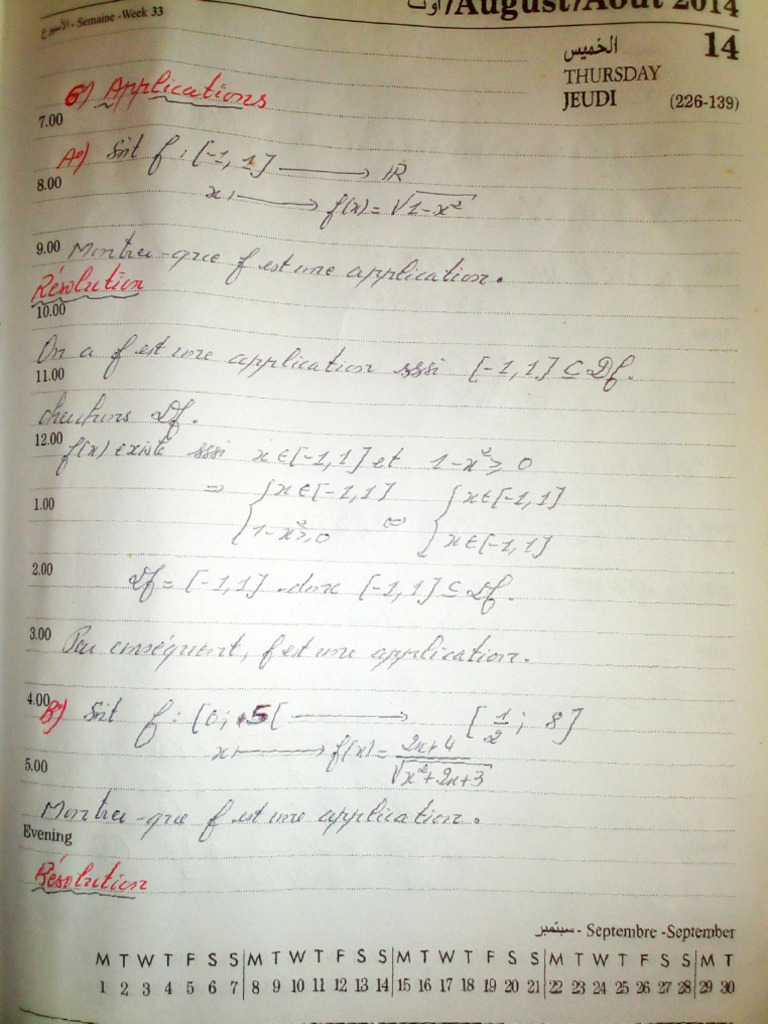 الأسبوع - Semaine -Week 33
أوت/August/Août 2014
الخميس 14
THURSDAY
JEUDI (226-139)
6°) Applications
7.00
A°) Soit f : [-1, 1] ⟶ IR
8.00
x ⟼ f(x) = √(1-x²)
9.00 Montrer-que f est une application.
Résolution
10.00
On a f est une application sssi [-1, 1] ⊆ Df.
11.00
cherchons Df.
12.00 f(x) existe sssi x ∈ [-1, 1] et 1-x² ≥ 0
⇒ { x ∈ [-1, 1] ⇔ { x ∈ [-1, 1]
1.00
1-x² ≥ 0 x ∈ [-1, 1]
2.00
Df = [-1, 1]. donc [-1, 1] ⊆ Df.
3.00 Par conséquent, f est une application.
4.00 B°) Soit f : [0; +5[ ⟶ [1/2; 8]
x ⟼ f(x) = (2x+4)/√(x²+2x+3)
5.00
Montrer-que f est une application.
Evening
Résolution
سبتمبر - Septembre -September
M T W T F S S M T W T F S S M T W T F S S M T W T F S S M T
1 2 3 4 5 6 7 8 9 10 11 12 13 14 15 16 17 18 19 20 21 22 23 24 25 26 27 28 29 30